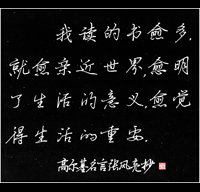 我读的书愈多,
就愈亲近世界,愈明
了生活的意义,愈觉
得生活的重要.
高尔基名言张风亮抄